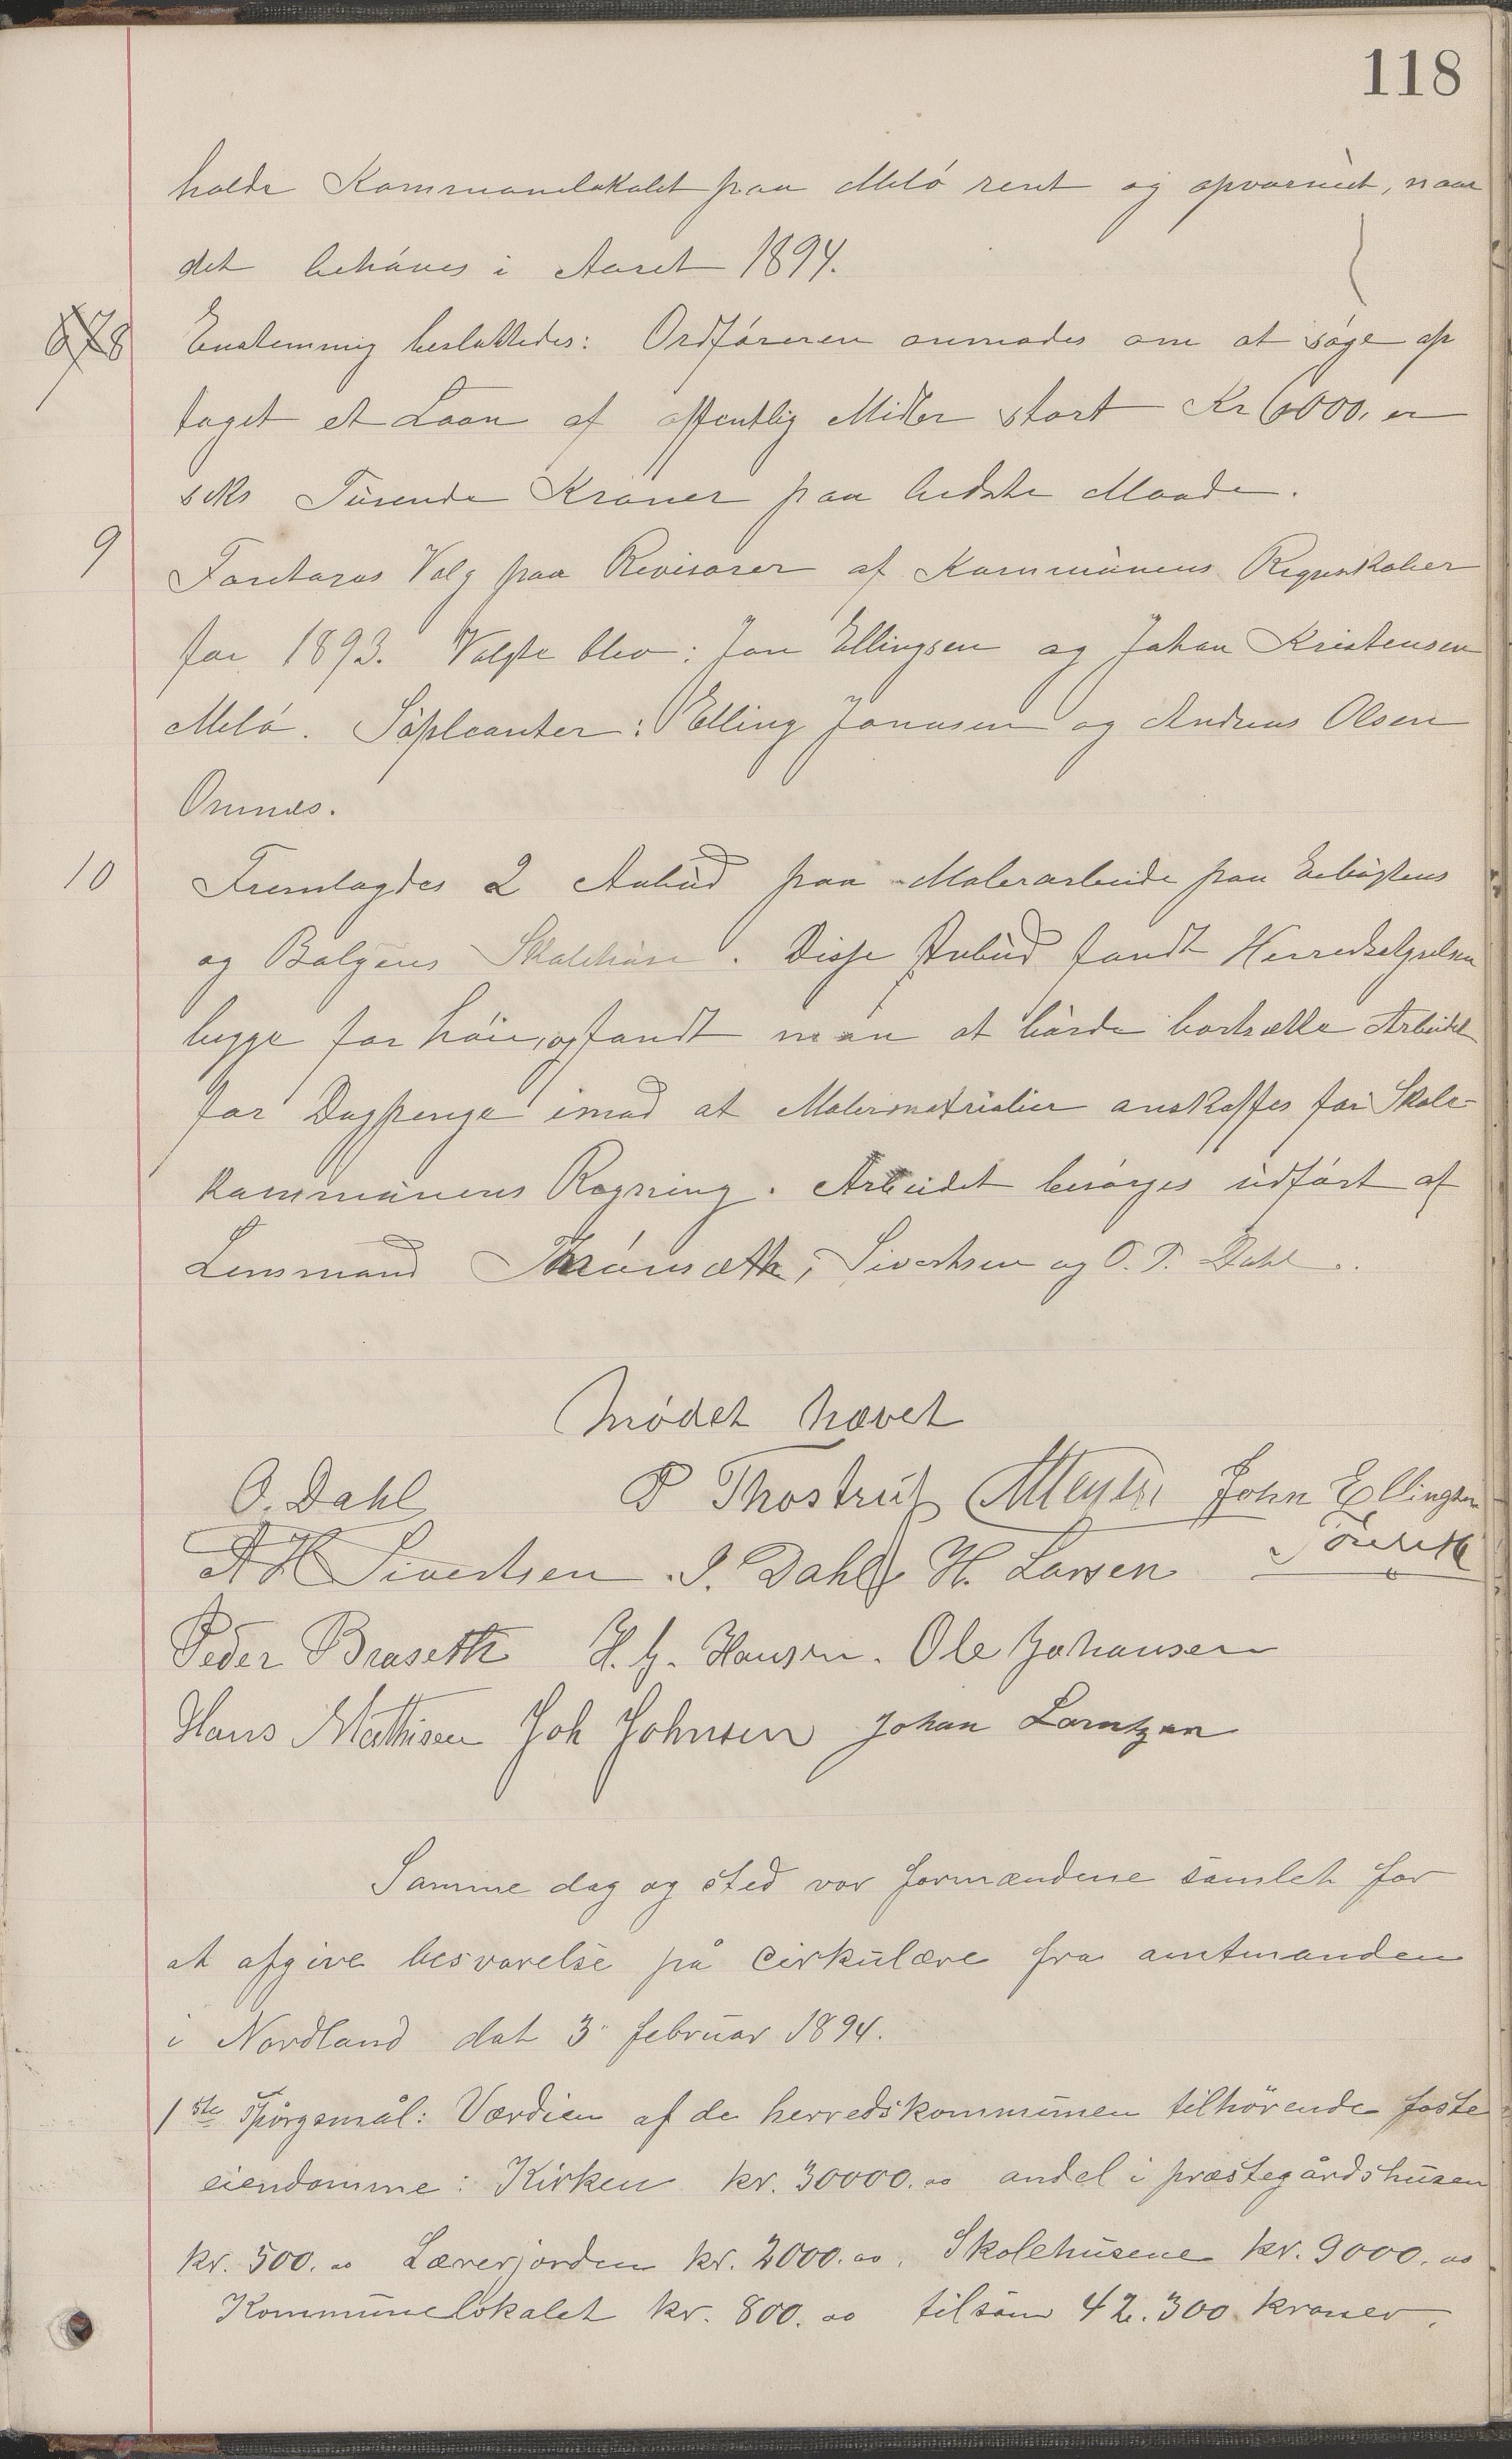 118
holde Kommunelokalet paa Melö rent og opvarmet, naar
det behöves i Aaret 1894.
8 Enstemmig besluttedes: Ordföreren anmodes om at söge op
taget et Laan af offentlig Midler stort Kr 6000, er
seks Tusende Kroner paa bedste Maade.
9 Foretages Valg paa Revisorer af Kommunens Regnskaber
for 1893. Valgte blev: Jon Ellingsen og Johan Kristensen
Melö. Supleanter: Elling Jonasen og Andreas Olsen
Ornnes.
10 Fremlagdes 2 Anbud paa Malerarbeide paa
og Bolgens Skolehuse. Disse Anbud fandt Herredsstyrelsen
begge for höie, og fandt man at burde bortsætte Arbeidet
for Dagpenge imod at Malermaterialier anskaffes for Skole-
kommunens Regning. Arbeidet besörges udfört af
Lensmand Sivertsen og O. P. Dahl.
Mødet hævet
O. Dahl P Thostrup AMeyer John Ellingsen
A H Sivertsen J. Dahl H. Larsen
Peder Braseth H. J. Hansen. Ole Johansen
Hans Mathisen Joh Johnsen Johan Lorntzen
Samme dag og sted var formændene samlet for
at afgive besvarelse på cirkulære fra amtmanden
i Nordland dat 3 februar 1894.
1ste Spörgsmål: Værdien af de herredskommunen tilhörende faste
eiendomme: Kirken kr. 30000.00 andel i præstegårdshusen
kr. 500.00 Lærerjorden kr. 2000.00. Skolehusene kr. 9000.00
Kommunelokalet kr. 800.00 tilsam 42.300 kroner.